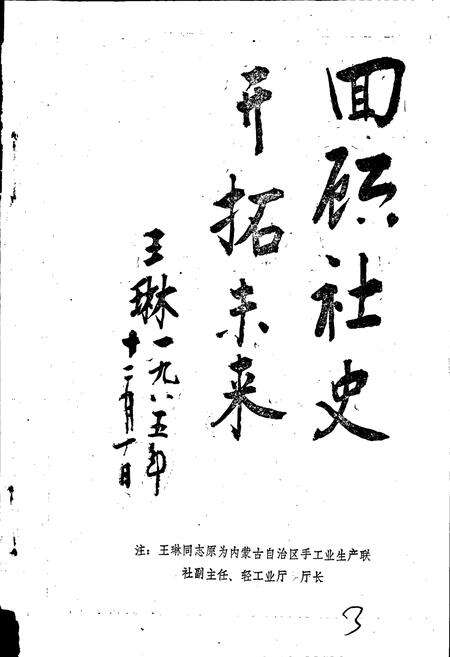 回顾社史
开拓未来
王琳
一九八五年
十二月十日
注：王琳同志原为内蒙古自治区手工业生产联
社副主任、轻工业厅 厅长
3